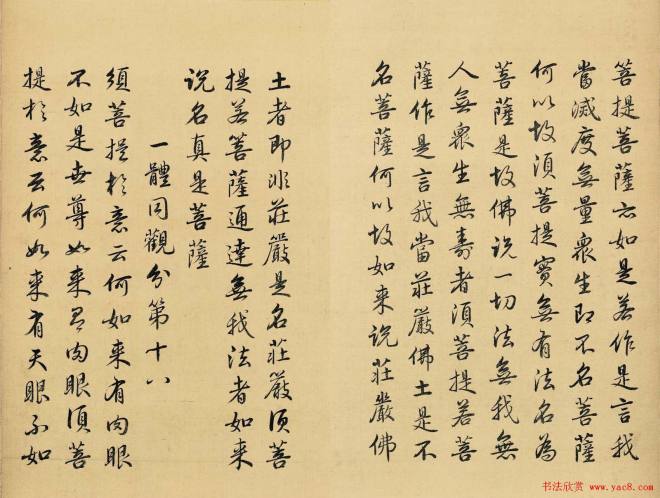 菩提菩薩亦如是若作是言我
當滅度無量衆生即不名菩薩
何以故須菩提實無有法名為
菩薩是故佛說一切法無我無
人無衆生無壽者須菩提若菩
薩作是言我當莊嚴佛土是不
名菩薩何以故如来說莊嚴佛
土者即非莊嚴是名莊嚴須菩
提若菩薩通達無我法者如来
說名真是菩薩
一體同觀分第十八
須菩提於意云何如来有肉眼
不如是世尊如来有肉眼須菩
提於意云何如来有天眼不如
书法欣赏
www.yac8.com